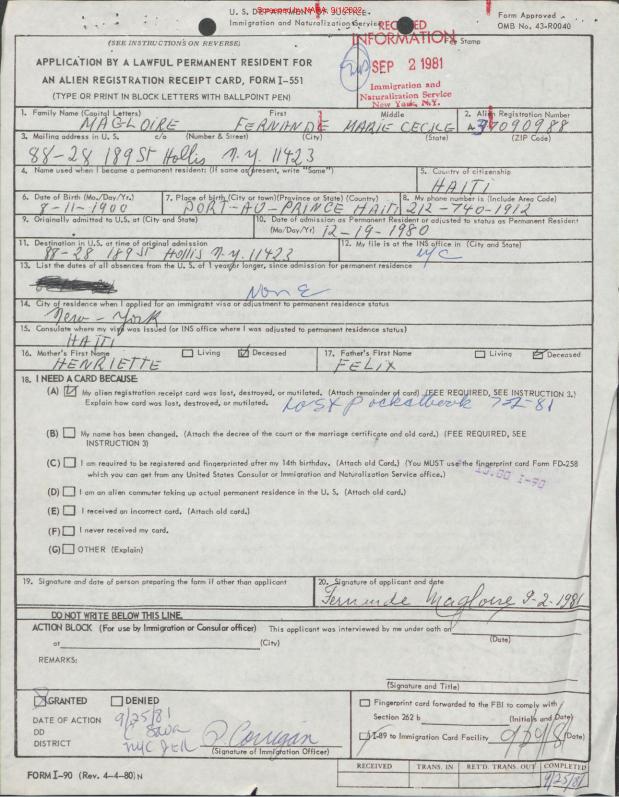 U. S. DEPARTMENT OF JUSTICE
Immigration and Naturalization Service
Form Approved
OMB No. 43-R0040
RECEIVED
INFORMATION
Fee Stamp
SEP 2 1981
Immigration and
Naturalization Service
New York, N.Y.
(SEE INSTRUCTIONS ON REVERSE)
APPLICATION BY A LAWFUL PERMANENT RESIDENT FOR
AN ALIEN REGISTRATION RECEIPT CARD, FORM I-551
(TYPE OR PRINT IN BLOCK LETTERS WITH BALLPOINT PEN)
1. Family Name (Capital Letters) First Middle 2. Alien Registration Number
MAGLOIRE FERNANDE MARIE CECILE A-37090988
3. Mailing address in U. S. c/o (Number & Street) (City) (State) (ZIP Code)
88-28 189 St Hollis N.Y. 11423
4. Name used when I became a permanent resident: (If same as present, write "Same") 5. Country of citizenship
HAITI
6. Date of Birth (Mo./Day/Yr.) 7. Place of birth (City or town)(Province or State) (Country) 8. My phone number is (Include Area Code)
8-11-1900 PORT-AU-PRINCE HAITI 212-740-1912
9. Originally admitted to U.S. at (City and State) 10. Date of admission as Permanent Resident or adjusted to status as Permanent Resident
(Mo/Day/Yr) 12-19-1980
11. Destination in U.S. at time of original admission 12. My file is at the INS office in (City and State)
88-28 189 St Hollis N.Y. 11423 NYC
13. List the dates of all absences from the U. S. of 1 year or longer, since admission for permanent residence
NONE
14. City of residence when I applied for an immigrant visa or adjustment to permanent residence status
New-York
15. Consulate where my visa was issued (or INS office where I was adjusted to permanent residence status)
HAITI
16. Mother's First Name Living Deceased 17. Father's First Name Living Deceased
HENRIETTE FELIX
18. I NEED A CARD BECAUSE:
(A) My alien registration receipt card was lost, destroyed, or mutilated. (Attach remainder of card) (FEE REQUIRED, SEE INSTRUCTION 3.)
Explain how card was lost, destroyed, or mutilated. Lost pocketbook 7-2-81
(B) My name has been changed. (Attach the decree of the court or the marriage certificate and old card.) (FEE REQUIRED, SEE
INSTRUCTION 3)
(C) I am required to be registered and fingerprinted after my 14th birthday. (Attach old Card.) (You MUST use the fingerprint card Form FD-258
which you can get from any United States Consular or Immigration and Naturalization Service office.)
I-90
(D) I am an alien commuter taking up actual permanent residence in the U. S. (Attach old card.)
(E) I received an incorrect card. (Attach old card.)
(F) I never received my card.
(G) OTHER (Explain)
19. Signature and date of person preparing the form if other than applicant 20. Signature of applicant and date
Fernande Magloire 9-2-1981
DO NOT WRITE BELOW THIS LINE.
ACTION BLOCK (For use by Immigration or Consular officer) This applicant was interviewed by me under oath on
(Date)
at (City)
REMARKS:
(Signature and Title)
GRANTED DENIED
DATE OF ACTION 9/25/81
DD
DISTRICT NYC
D. Corrigan
(Signature of Immigration Officer)
Fingerprint card forwarded to the FBI to comply with
Section 262 b (Initials and Date)
I-89 to Immigration Card Facility (Date)
RECEIVED TRANS. IN RET'D. TRANS. OUT COMPLETED
9/25/81
FORM I-90 (Rev. 4-4-80) N